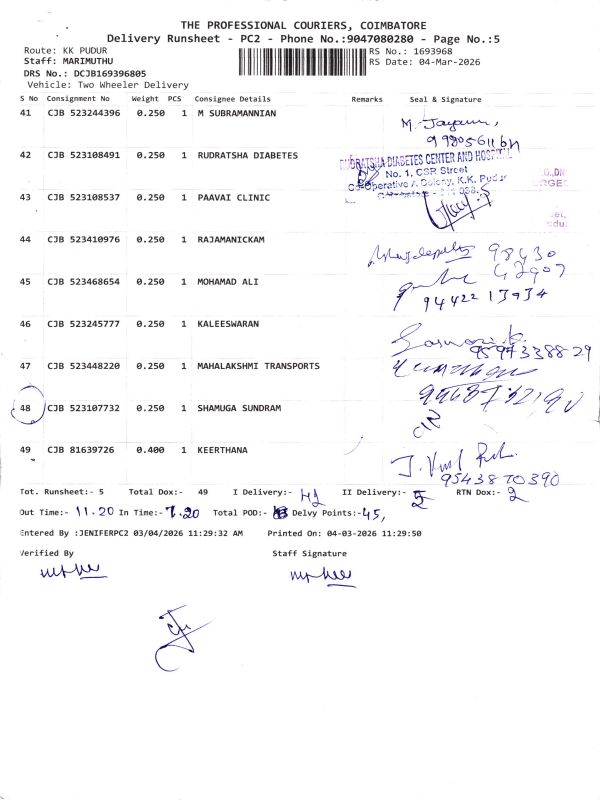 THE PROFESSIONAL COURIERS, COIMBATORE
Delivery Runsheet - PC2 - Phone No.:9047080280 - Page No.:5
Route: KK PUDUR
RS No.: 1693968
Staff: MARIMUTHU
RS Date: 04-Mar-2026
DRS No.: DCJB169396805
Vehicle: Two Wheeler Delivery
S No Consignment No Weight PCS Consignee Details Remarks Seal & Signature
41 CJB 523244396 0.250 1 M SUBRAMANNIAN
M. Jayam,
42 CJB 523108491 0.250 1 RUDRATSHA DIABETES
RUDRATSHA DIABETES CENTER AND HOSPITAL
No. 1, CSR Street
Co-Operative A Colony, K.K. Pudur
43 CJB 523108537 0.250 1 PAAVAI CLINIC
44 CJB 523410976 0.250 1 RAJAMANICKAM
98430
42907
45 CJB 523468654 0.250 1 MOHAMAD ALI
94422 13934
46 CJB 523245777 0.250 1 KALEESWARAN
9597338829
47 CJB 523448220 0.250 1 MAHALAKSHMI TRANSPORTS
48 CJB 523107732 0.250 1 SHAMUGA SUNDRAM
49 CJB 81639726 0.400 1 KEERTHANA
9543870390
Tot. Runsheet:- 5 Total Dox:- 49 I Delivery:- 42 II Delivery:- 5 RTN Dox:- 2
Out Time:- 11.20 In Time:- 7.20 Total POD:- Delvy Points:- 45,
Entered By :JENIFERPC2 03/04/2026 11:29:32 AM Printed On: 04-03-2026 11:29:50
Verified By Staff Signature